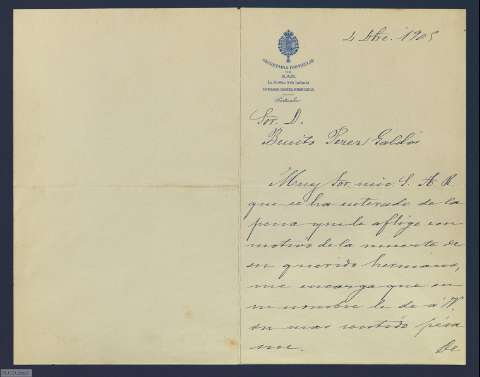 4 Dbre. 1905
SECRETARIA PARTICULAR
DE
S.A.R.
La Serma. Sra. Infanta
Particular
Sor. D.
Benito Perez Galdós
Muy Sor. mio: S. A. R.
que se ha enterado de la
pena que le aflige con
motivo de la muerte de
su querido hermano,
me encarga que en
su nombre le dé á V.
su mas sentido pésa
me.
De